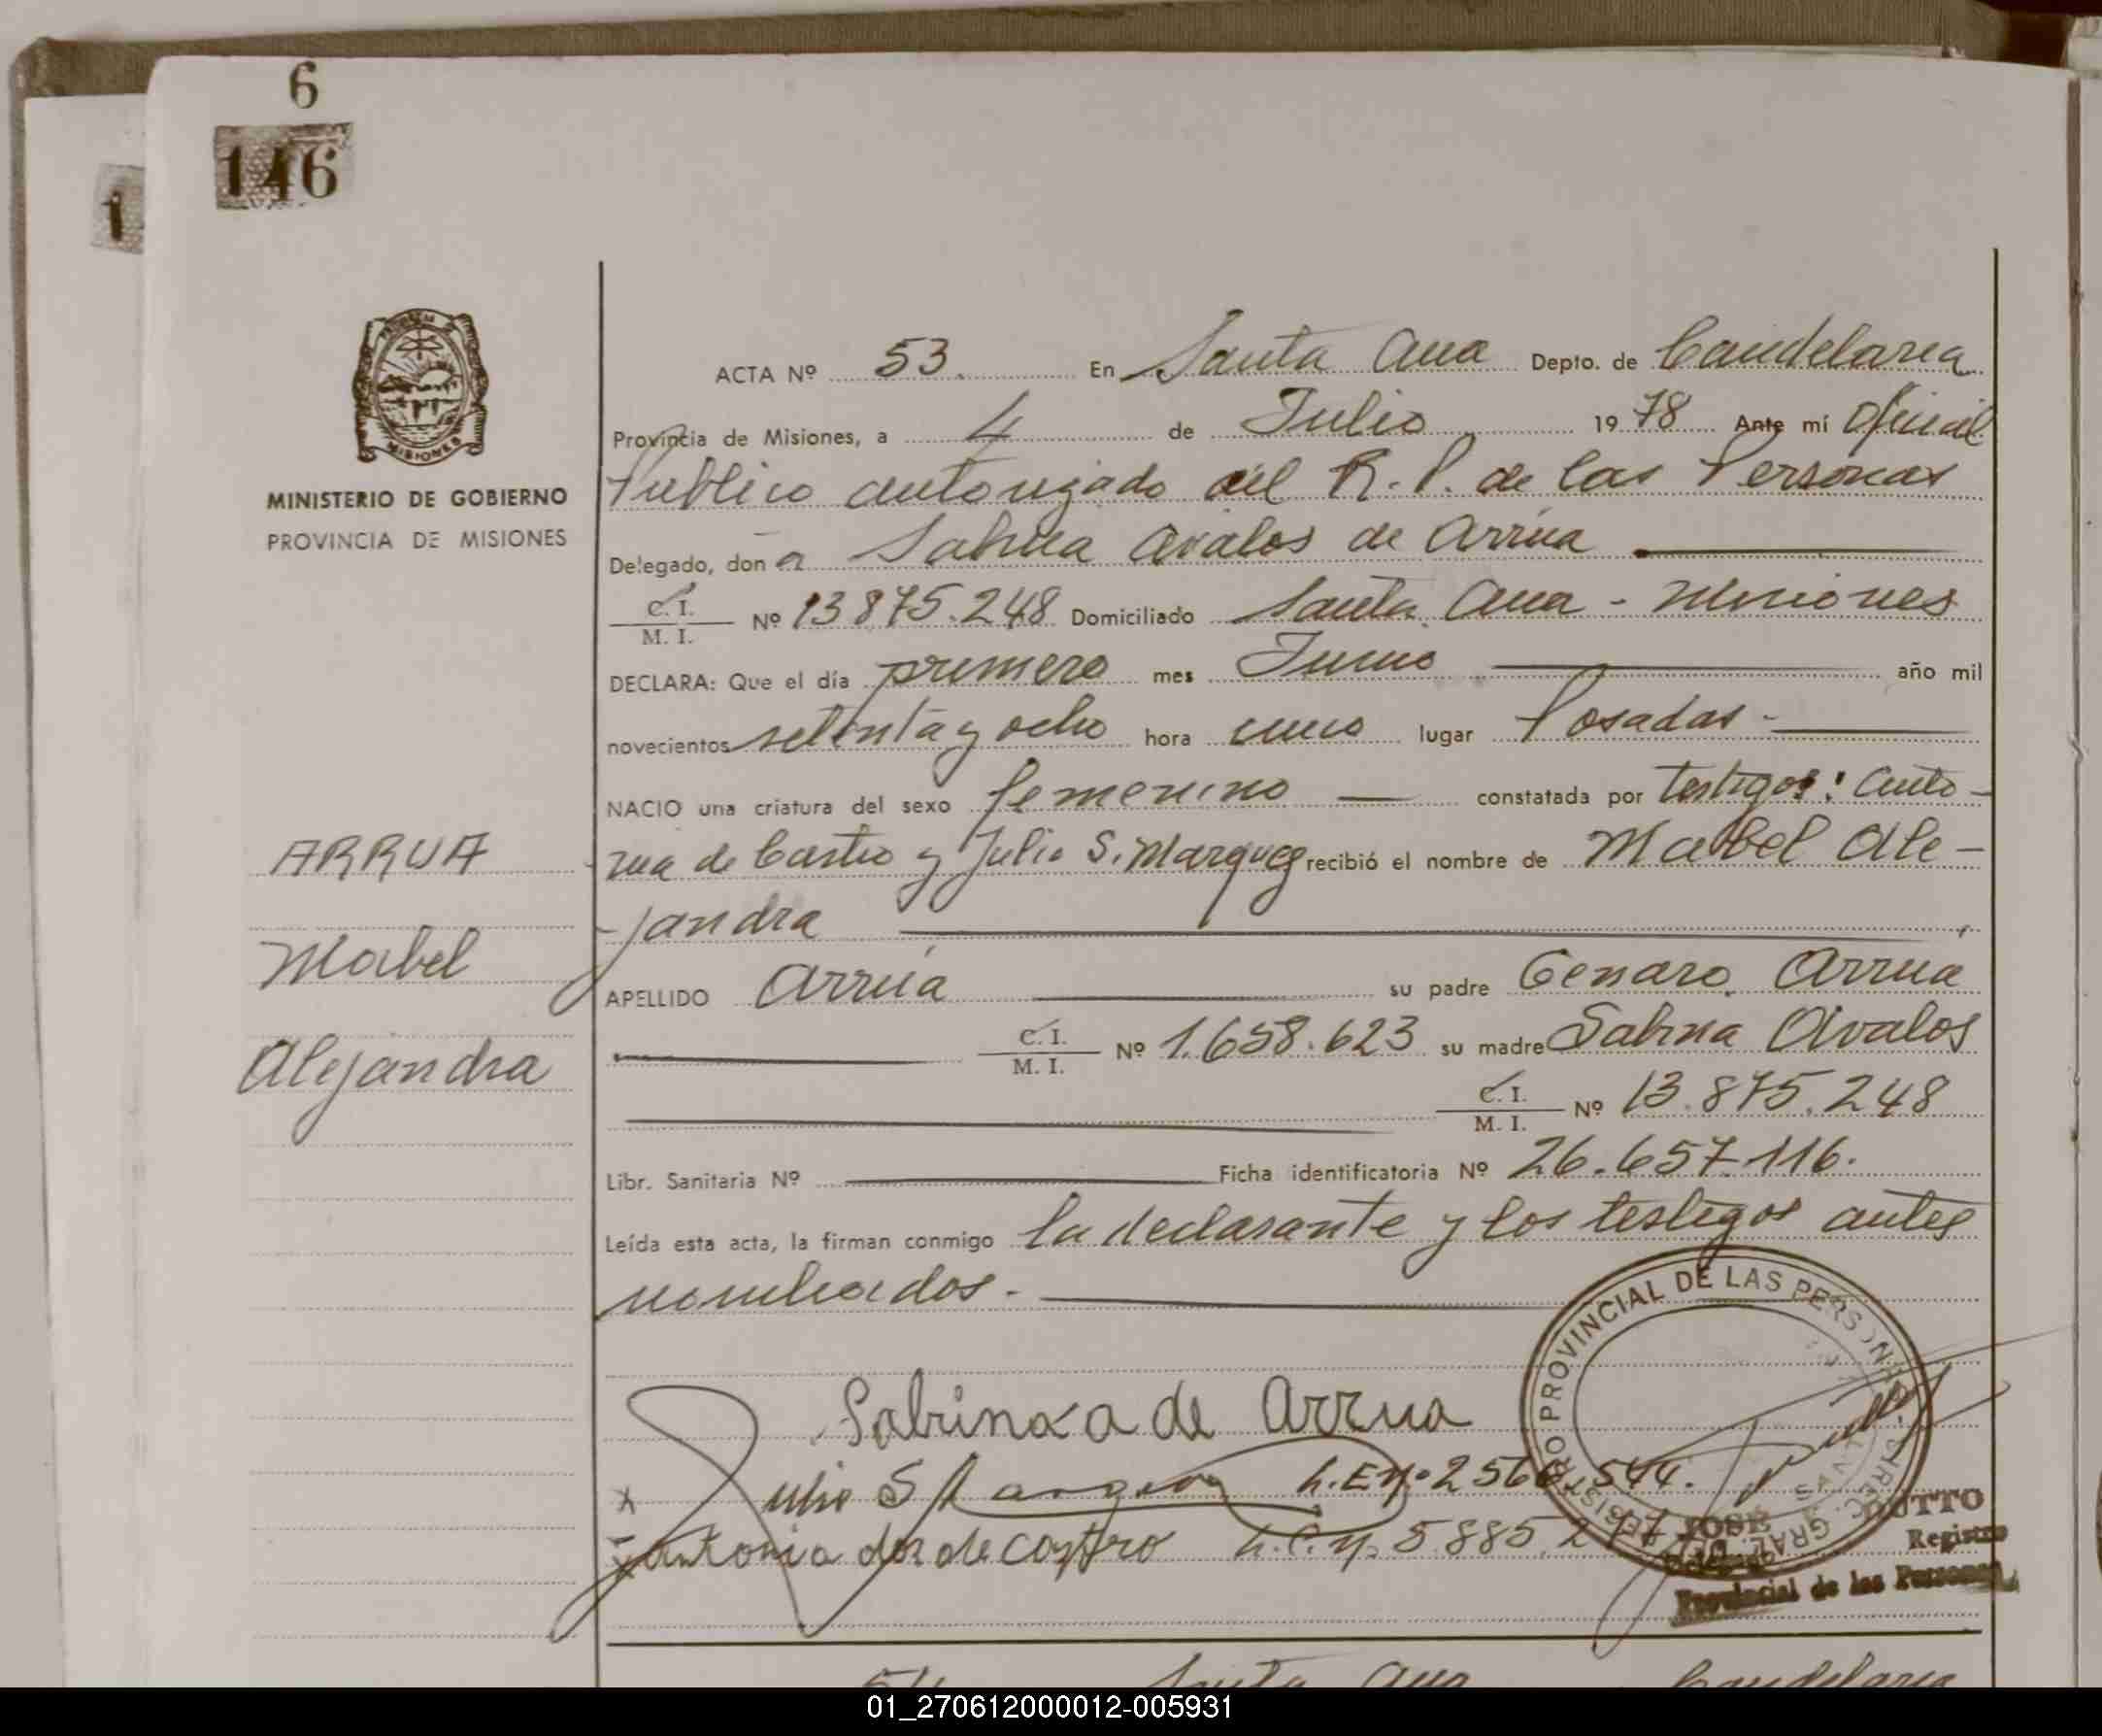 6
146
1
MINISTERIO DE GOBIERNO
PROVINCIA DE MISIONES
ARRUA
Mabel
Alejandra
ACTA Nº 53. En Santa Ana Depto. de Candelaria
Provincia de Misiones, a 4 de Julio 1978 Ante mí Oficial
Publico autorizado del R.P. de las Personas
Delegado, don a Sabina Avalos de Arrúa
C. I. / M. I. Nº 13.875.248 Domiciliado Santa Ana - Misiones
DECLARA: Que el día primero mes Junio año mil
novecientos setenta y ocho hora cinco lugar Posadas -
NACIO una criatura del sexo femenino constatada por testigos: Anto-
nia de Castro y Julio S. Marquez recibió el nombre de Mabel Ale-
-jandra
APELLIDO Arrúa su padre Genaro Arrua
C. I. / M. I. Nº 1.658.623 su madre Sabina Avalos
C. I. / M. I. Nº 13.875.248
Libr. Sanitaria Nº Ficha identificatoria Nº 26.657.116.
Leída esta acta, la firman conmigo la declarante y los testigos antes
nombrados.-
Sabina a de Arrua
x Julio S Marquez L.E Nº 2566.544.
x Antonia dos de castro L.C.N. 5.885.277
REGISTRO PROVINCIAL DE LAS PERSONAS
DIREC. GRAL.
JOSE DUTTO
Registro
Provincial de las Personas
54 Santa Ana Candelaria
01_270612000012-005931